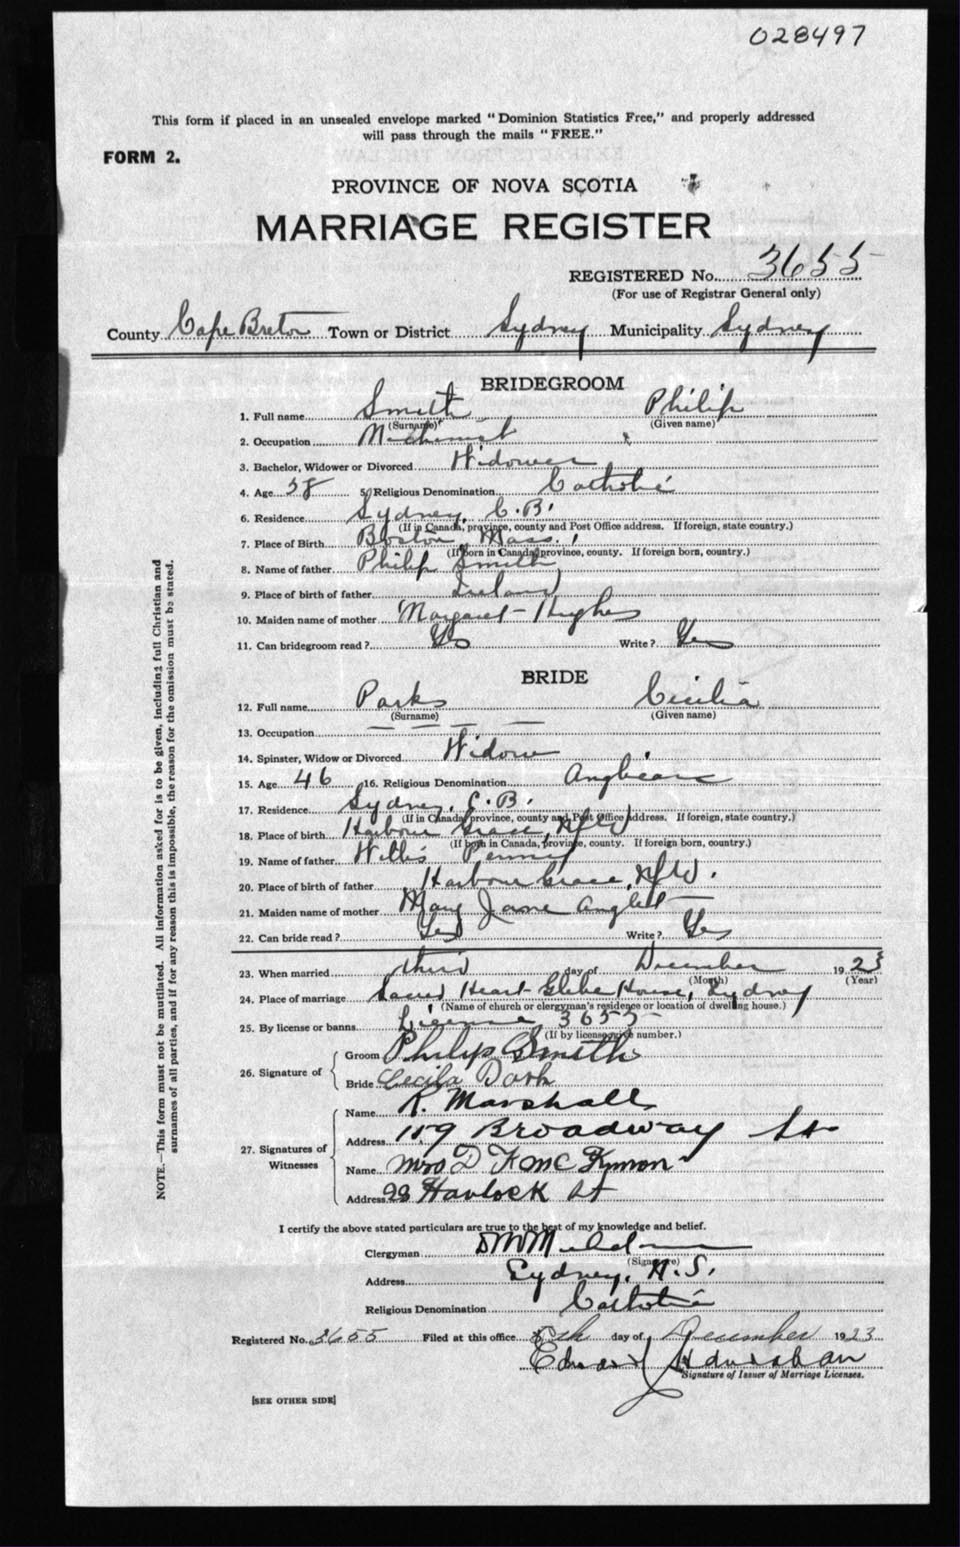 028497
This form if placed in an unsealed envelope marked "Dominion Statistics Free," and properly addressed
will pass through the mails "FREE."
FORM 2.
PROVINCE OF NOVA SCOTIA
MARRIAGE REGISTER
REGISTERED No. 3655
(For use of Registrar General only)
County Cape Breton Town or District Sydney Municipality Sydney
BRIDEGROOM
1. Full name Smith Philip
(Surname) (Given name)
2. Occupation Machinist
3. Bachelor, Widower or Divorced Widower
4. Age 58 5. Religious Denomination Catholic
6. Residence Sydney, C.B.
(If in Canada, province, county and Post Office address. If foreign, state country.)
7. Place of Birth Boston, Mass.
(If born in Canada, province, county. If foreign born, country.)
8. Name of father Philip Smith
9. Place of birth of father Ireland
10. Maiden name of mother Margaret Hughes
11. Can bridegroom read? Yes Write? Yes
BRIDE
12. Full name Parks Cecilia
(Surname) (Given name)
13. Occupation — — — —
14. Spinster, Widow or Divorced Widow
15. Age 46 16. Religious Denomination Anglican
17. Residence Sydney, C.B.
(If in Canada, province, county and Post Office address. If foreign, state country.)
18. Place of birth Harbour Grace, Nfld
(If born in Canada, province, county. If foreign born, country.)
19. Name of father Willis Penney
20. Place of birth of father Harbour Grace, Nfld.
21. Maiden name of mother Mary Jane
22. Can bride read? Yes Write? Yes
23. When married third day of December 1923
(Month) (Year)
24. Place of marriage Sacred Heart Glebe House, Sydney
(Name of church or clergyman's residence or location of dwelling house.)
25. By license or banns License 3655
(If by license give number.)
26. Signature of
Groom Philip Smith
Bride Cecila
27. Signatures of Witnesses
Name R. Marshall
Address 119 Broadway St
Name Mrs D
Address 98 Havlock St
I certify the above stated particulars are true to the best of my knowledge and belief.
Clergyman
(Signature)
Address Sydney, N.S.
Religious Denomination Catholic
Registered No. 3655 Filed at this office day of December 1923
Edward
Signature of Issuer of Marriage Licenses.
[SEE OTHER SIDE]
NOTE.—This form must not be mutilated. All information asked for is to be given, including full Christian and
surnames of all parties, and if for any reason this is impossible, the reason for the omission must be stated.